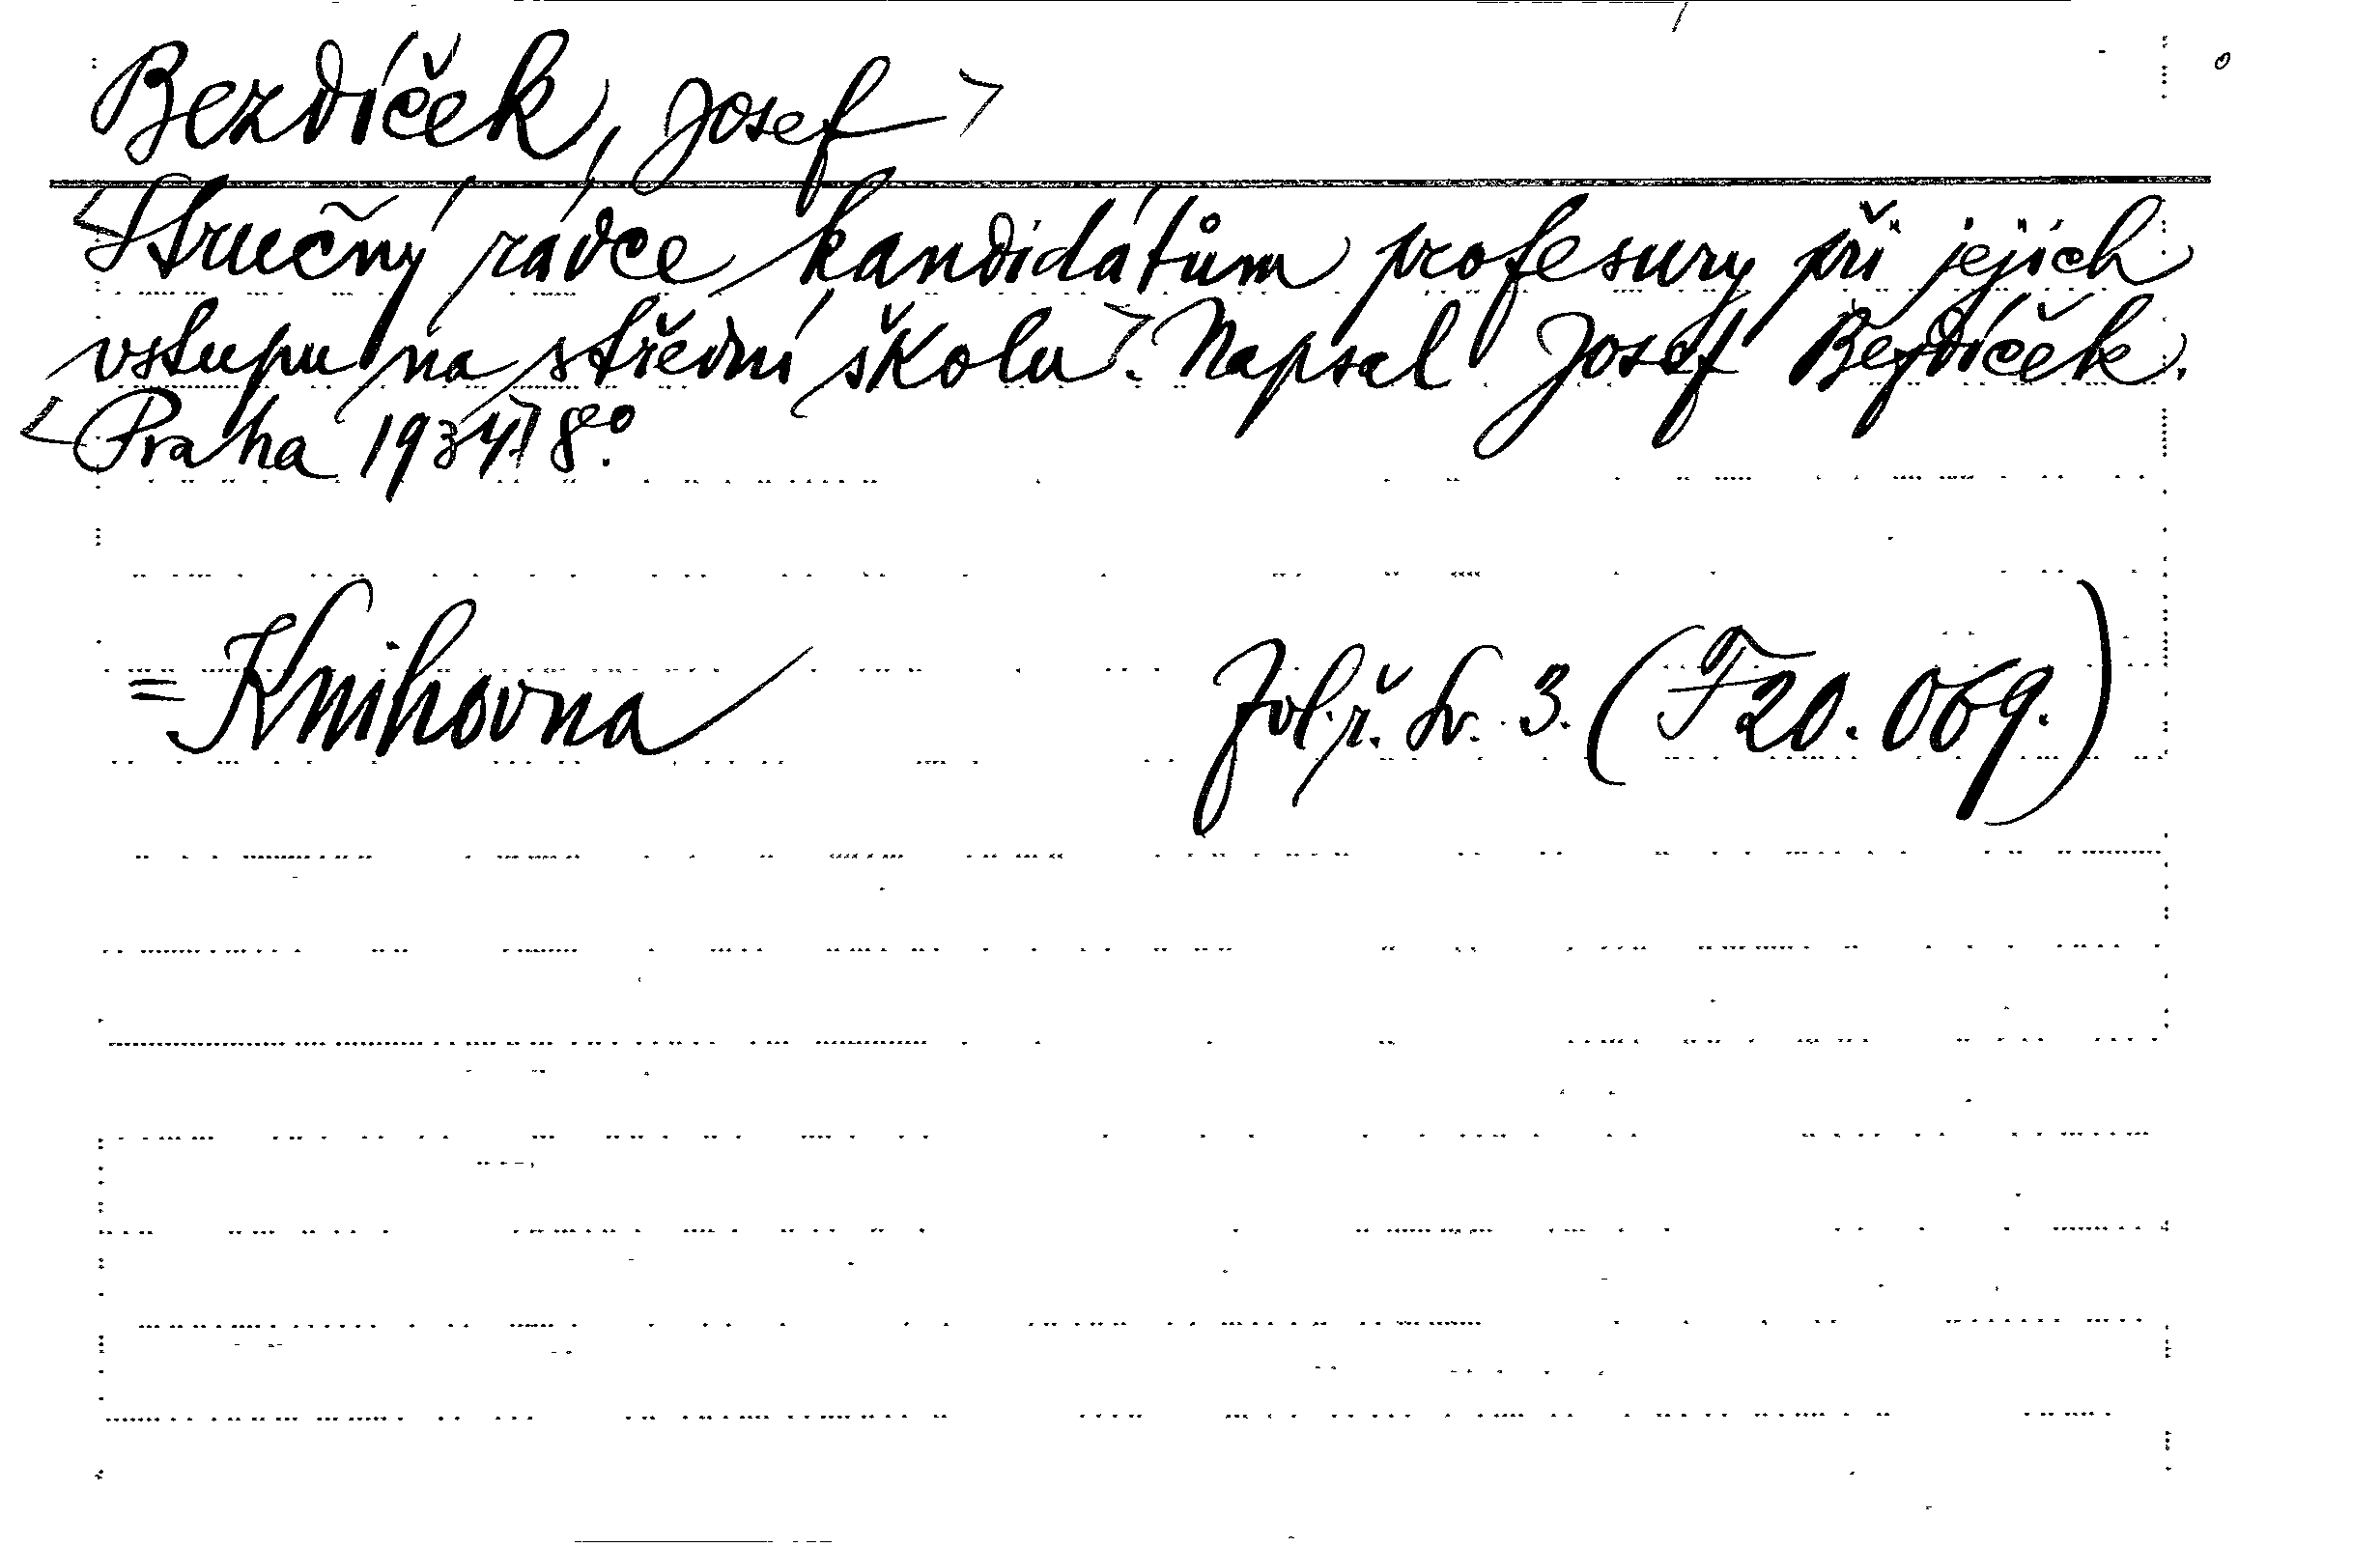 Bezdíček, Josef >
<Stručný rádce kandidátům profesury při jejich
vstupu na střední školu>. Napsal Josef Bezdíček.
<Praha 1934.> 8°.
= Knihovna Zvl. ř. Sv. 3. (F 20.069.)